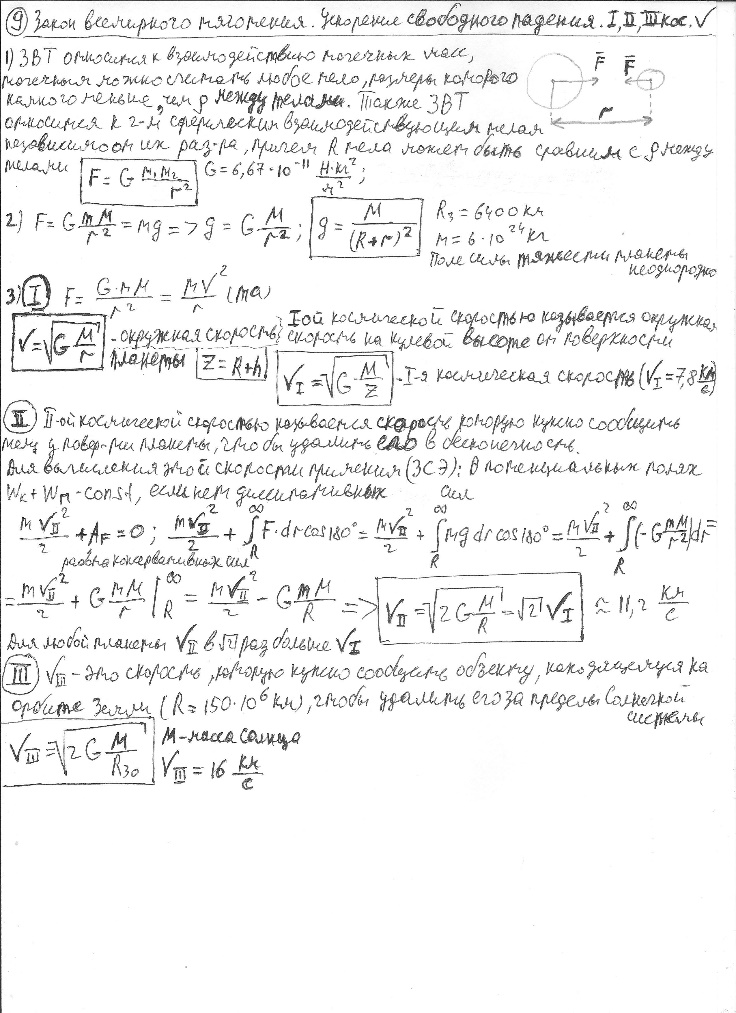 ⑨ Закон всемирного тяготения. Ускорение свободного падения. I, II, III кос. V
1) ЗВТ относится к взаимодействию точечных масс,
точечным можно считать любое тело, размеры которого
намного меньше, чем ρ между телами. Также ЗВТ
относится к 2-м сферическим взаимодействующим телам
независимо от их раз-ра, причем R тела может быть сравним с ρ между
телами F = G m₁m₂/r² G = 6,67·10⁻¹¹ Н·кг²/м²;
F F
r
2) F = G mM/r² = mg => g = G·M/r²; g = M/(R+r)²
Rз = 6400 км
M = 6·10²⁴ кг
Поле силы тяжести планеты
неоднородно
3) I F = G·mM/r² = mV²/r (ma)
V = √(G M/r) - окружная скорость планеты Z = R+h
I ой космической скоростью называется окружная
скорость на нулевой высоте от поверхности
V_I = √(G·M/Z) - I-я космическая скорость (V_I = 7,8 км/с)
II II-ой космической скоростью называется скорость которую нужно сообщить
телу у повер-ти планеты, чтобы удалить его в бесконечность.
Для вычисления этой скорости применим (ЗСЭ): В потенциальных полях
Wк + Wп - const, если нет диссипативных сил
mV_II²/2 + A_F = 0; mV_II²/2 + ∫_R^∞ F·dr cos180° = mV_II²/2 + ∫_R^∞ mg dr cos180° = mV_II²/2 + ∫_R^∞ (-G mM/r²)dr =
работа консервативных сил
= mV_II²/2 + G mM/r |_R^∞ = mV_II²/2 - G mM/R => V_II = √(2G M/R) = √2 V_I ≈ 11,2 км/с
Для любой планеты V_II в √2 раз больше V_I
III V_III - это скорость, которую нужно сообщить объекту, находящемуся на
орбите Земли (R = 150·10⁶ км), чтобы удалить его за пределы Солнечной
системы
V_III = √(2G M/Rзо) M - масса Солнца
V_III = 16 км/с